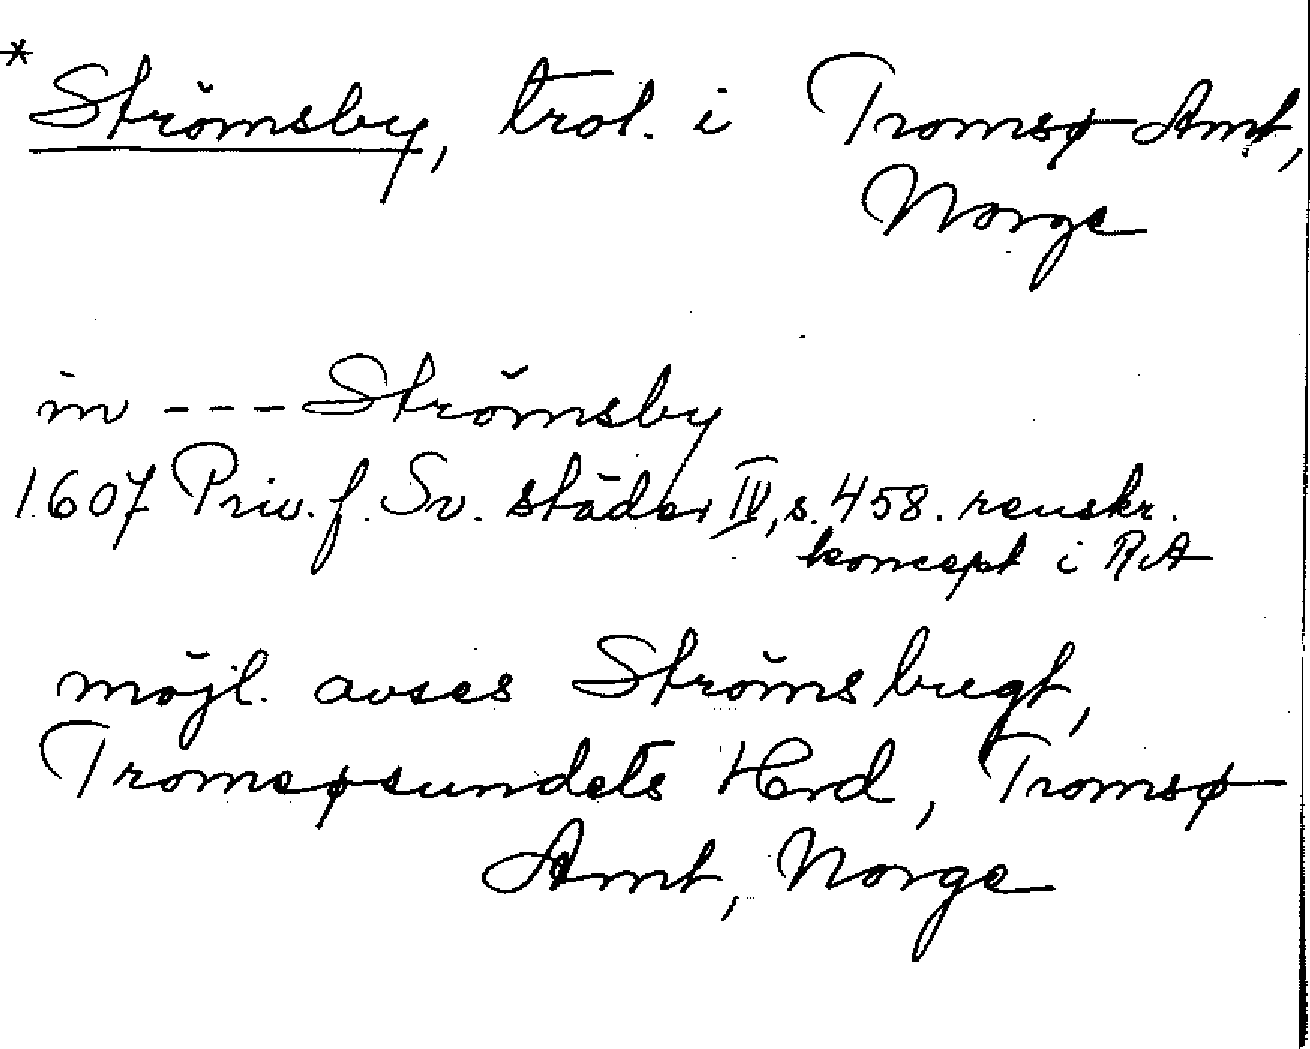 * Strömsby, trol. i Tromsø Amt,
Norge
in --- Strömsby
1607 Priv. f. Sv. städer IV, s. 458. renskr.
koncept i RA
möjl. avses Ströms bugt,
Tromsøsundets Hrd, Tromsø
Amt, Norge